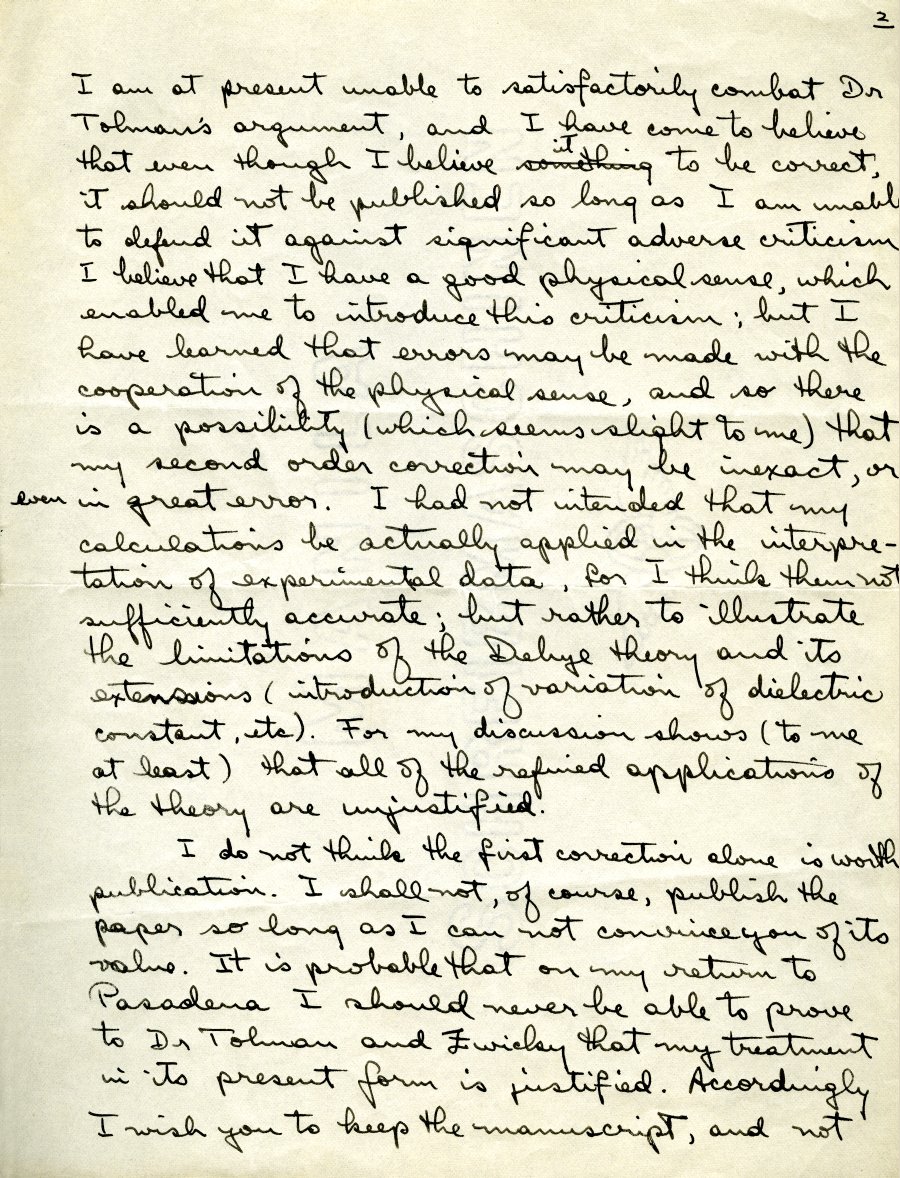 2
I am at present unable to satisfactorily combat Dr
Tolman's argument, and I have come to believe
that even though I believe ~~something~~ it to be correct,
it should not be published so long as I am unabl
to defend it against significant adverse criticism
I believe that I have a good physical sense, which
enabled me to introduce this criticism; but I
have learned that errors may be made with the
cooperation of the physical sense, and so there
is a possibility (which seems slight to me) that
my second order correction may be inexact, or
even in great error. I had not intended that my
calculations be actually applied in the interpre-
tation of experimental data, for I think them not
sufficiently accurate; but rather to illustrate
the limitations of the Debye theory and its
extensions (introduction of variation of dielectric
constant, etc). For my discussion shows (to me
at least) that all of the refined applications of
the theory are unjustified.
I do not think the first correction alone is worth
publication. I shall not, of course, publish the
paper so long as I can not convince you of its
value. It is probable that on my return to
Pasadena I should never be able to prove
to Dr Tolman and Zwicky that my treatment
in its present form is justified. Accordingly
I wish you to keep the manuscript, and not